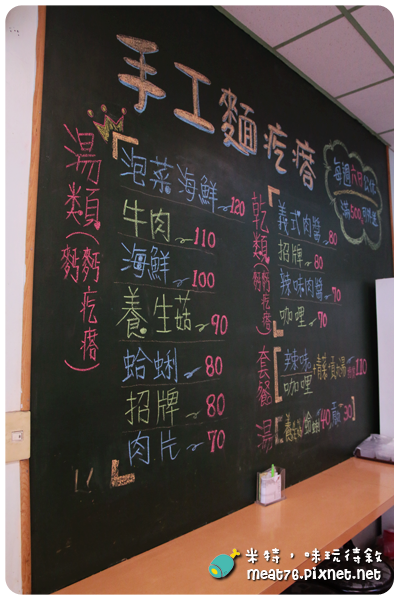 手工麵疙瘩
每週六日公休
滿500
湯類(麵 麵疙瘩)
泡菜海鮮~120
牛肉~110
海鮮~100
養生菇~90
蛤蜊 80
招牌~80
肉片~70
乾類(麵 麵疙瘩)
義式肉醬~80
招牌~80
辣味肉醬~70
咖哩~70
套餐
辣味
咖哩
110
湯
蛤蜊40
30
米特,味玩待敘
meat76.pixnet.net